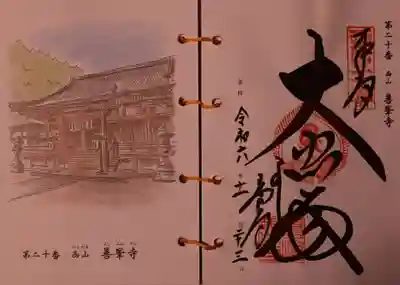 第二十番　西山　善峯寺
奉拝
大悲殿
令和六年十一月二十三日
善峯寺
第二十番　西山　善峯寺